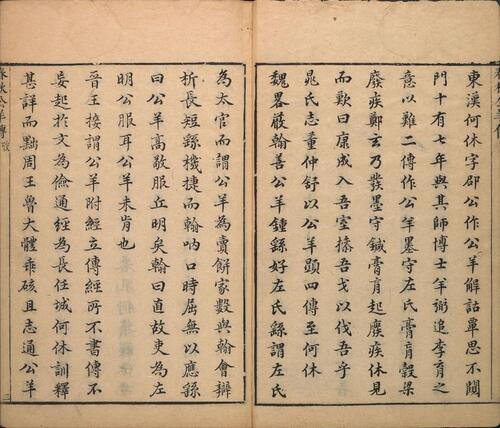 東漢何休字卲公作公羊解詁覃思不闚
門十有七年與其師博士羊弼追李育之
意以難二傳作公羊墨守左氏膏肓穀梁
廢疾鄭玄乃發墨守鍼膏肓起廢疾休見
而歎曰康成入吾室操吾戈以伐吾乎
晁氏志董仲舒以公羊顯四傳至何休
魏畧嚴翰善公羊鍾繇好左氏繇謂左氏
為太官而謂公羊為賣餅家數與翰會辨
析長短繇機捷而翰吶口時屈無以應繇
曰公羊高敵服丘明矣翰曰直故吏為左
明公服耳公羊未肯也
晉王接謂公羊附經立傳經所不書傳不
妄起於文為儉通經為長任城何休訓釋
甚詳而黜周王魯大體乖硋且志通公羊
春秋公羊傳
三